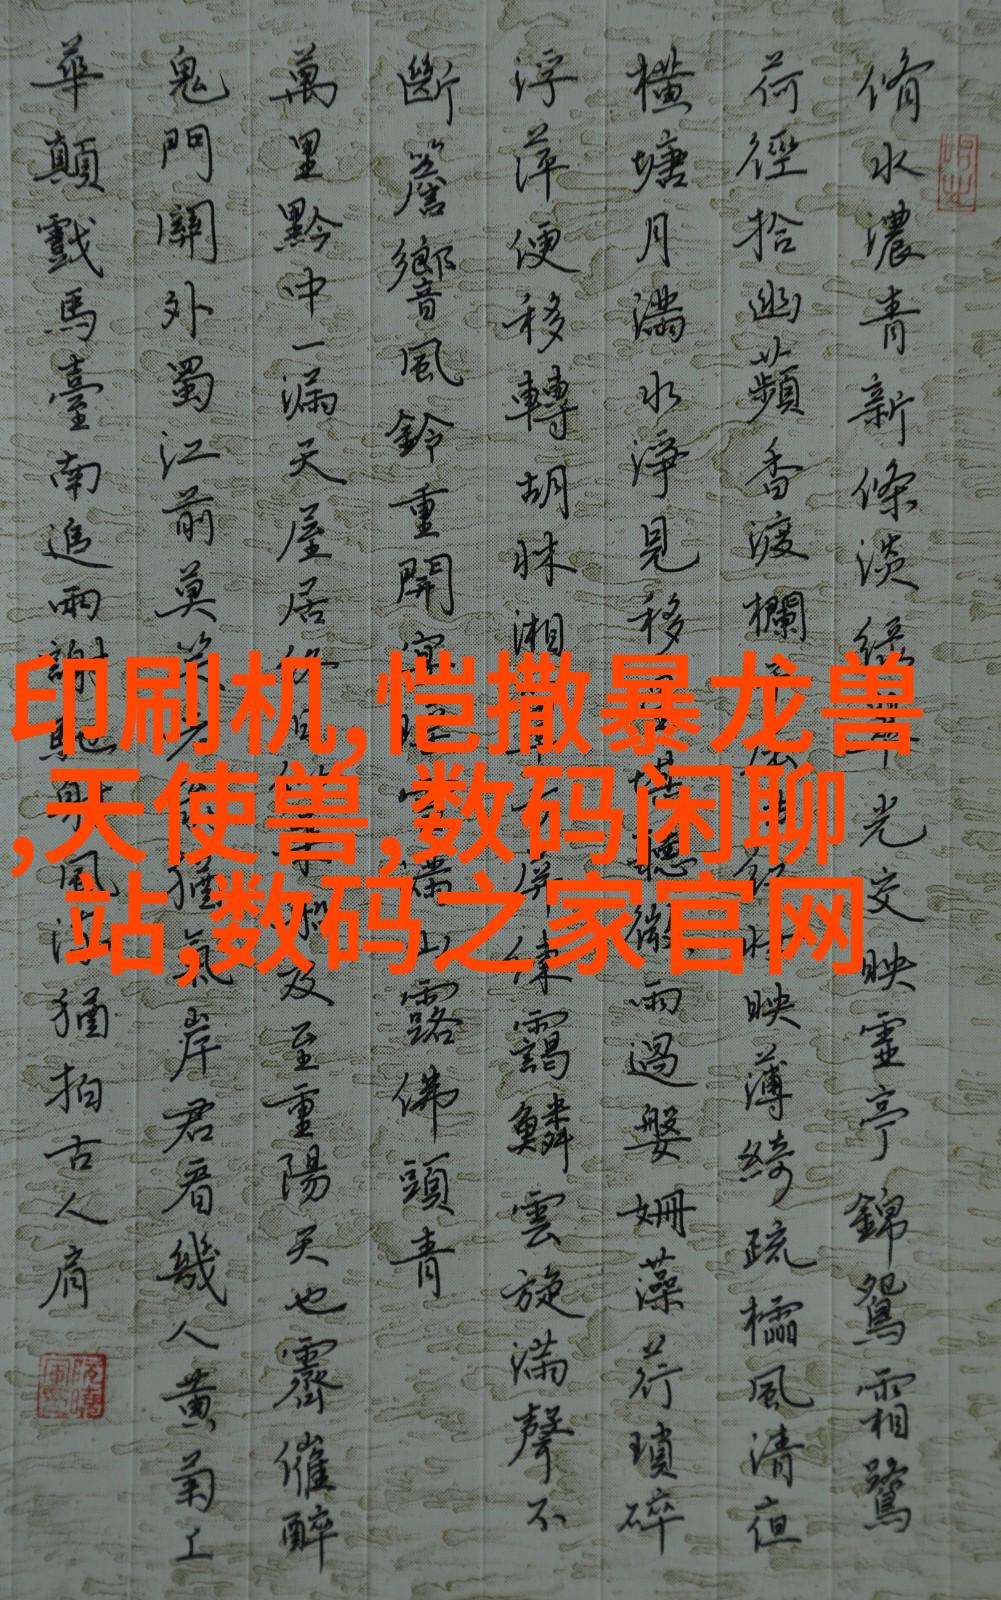 脩水濃青新條淡綠
光交映虛亭錦鴛霜鷺
荷徑拾幽蘋香渡欄
紅妝映薄綺疏櫺風清夜
橫塘月滿水淨見移
聽微雨過媻姍藻荇瑣碎
浮萍便移轉胡牀湘
屏練靄鱗雲旋滿聲不
斷簷響風鈴重開
滿山露佛頭青
萬里黔中一漏天屋居終日
及至重陽天也霽催醉
鬼門關外蜀江前莫笑老
猶氣岸君看幾人黃菊上
華顛戲馬臺南追兩謝馳射
風流猶拍古人肩
印刷机,恺撒暴龙兽
,天使兽,数码闲聊
站,数码之家官网